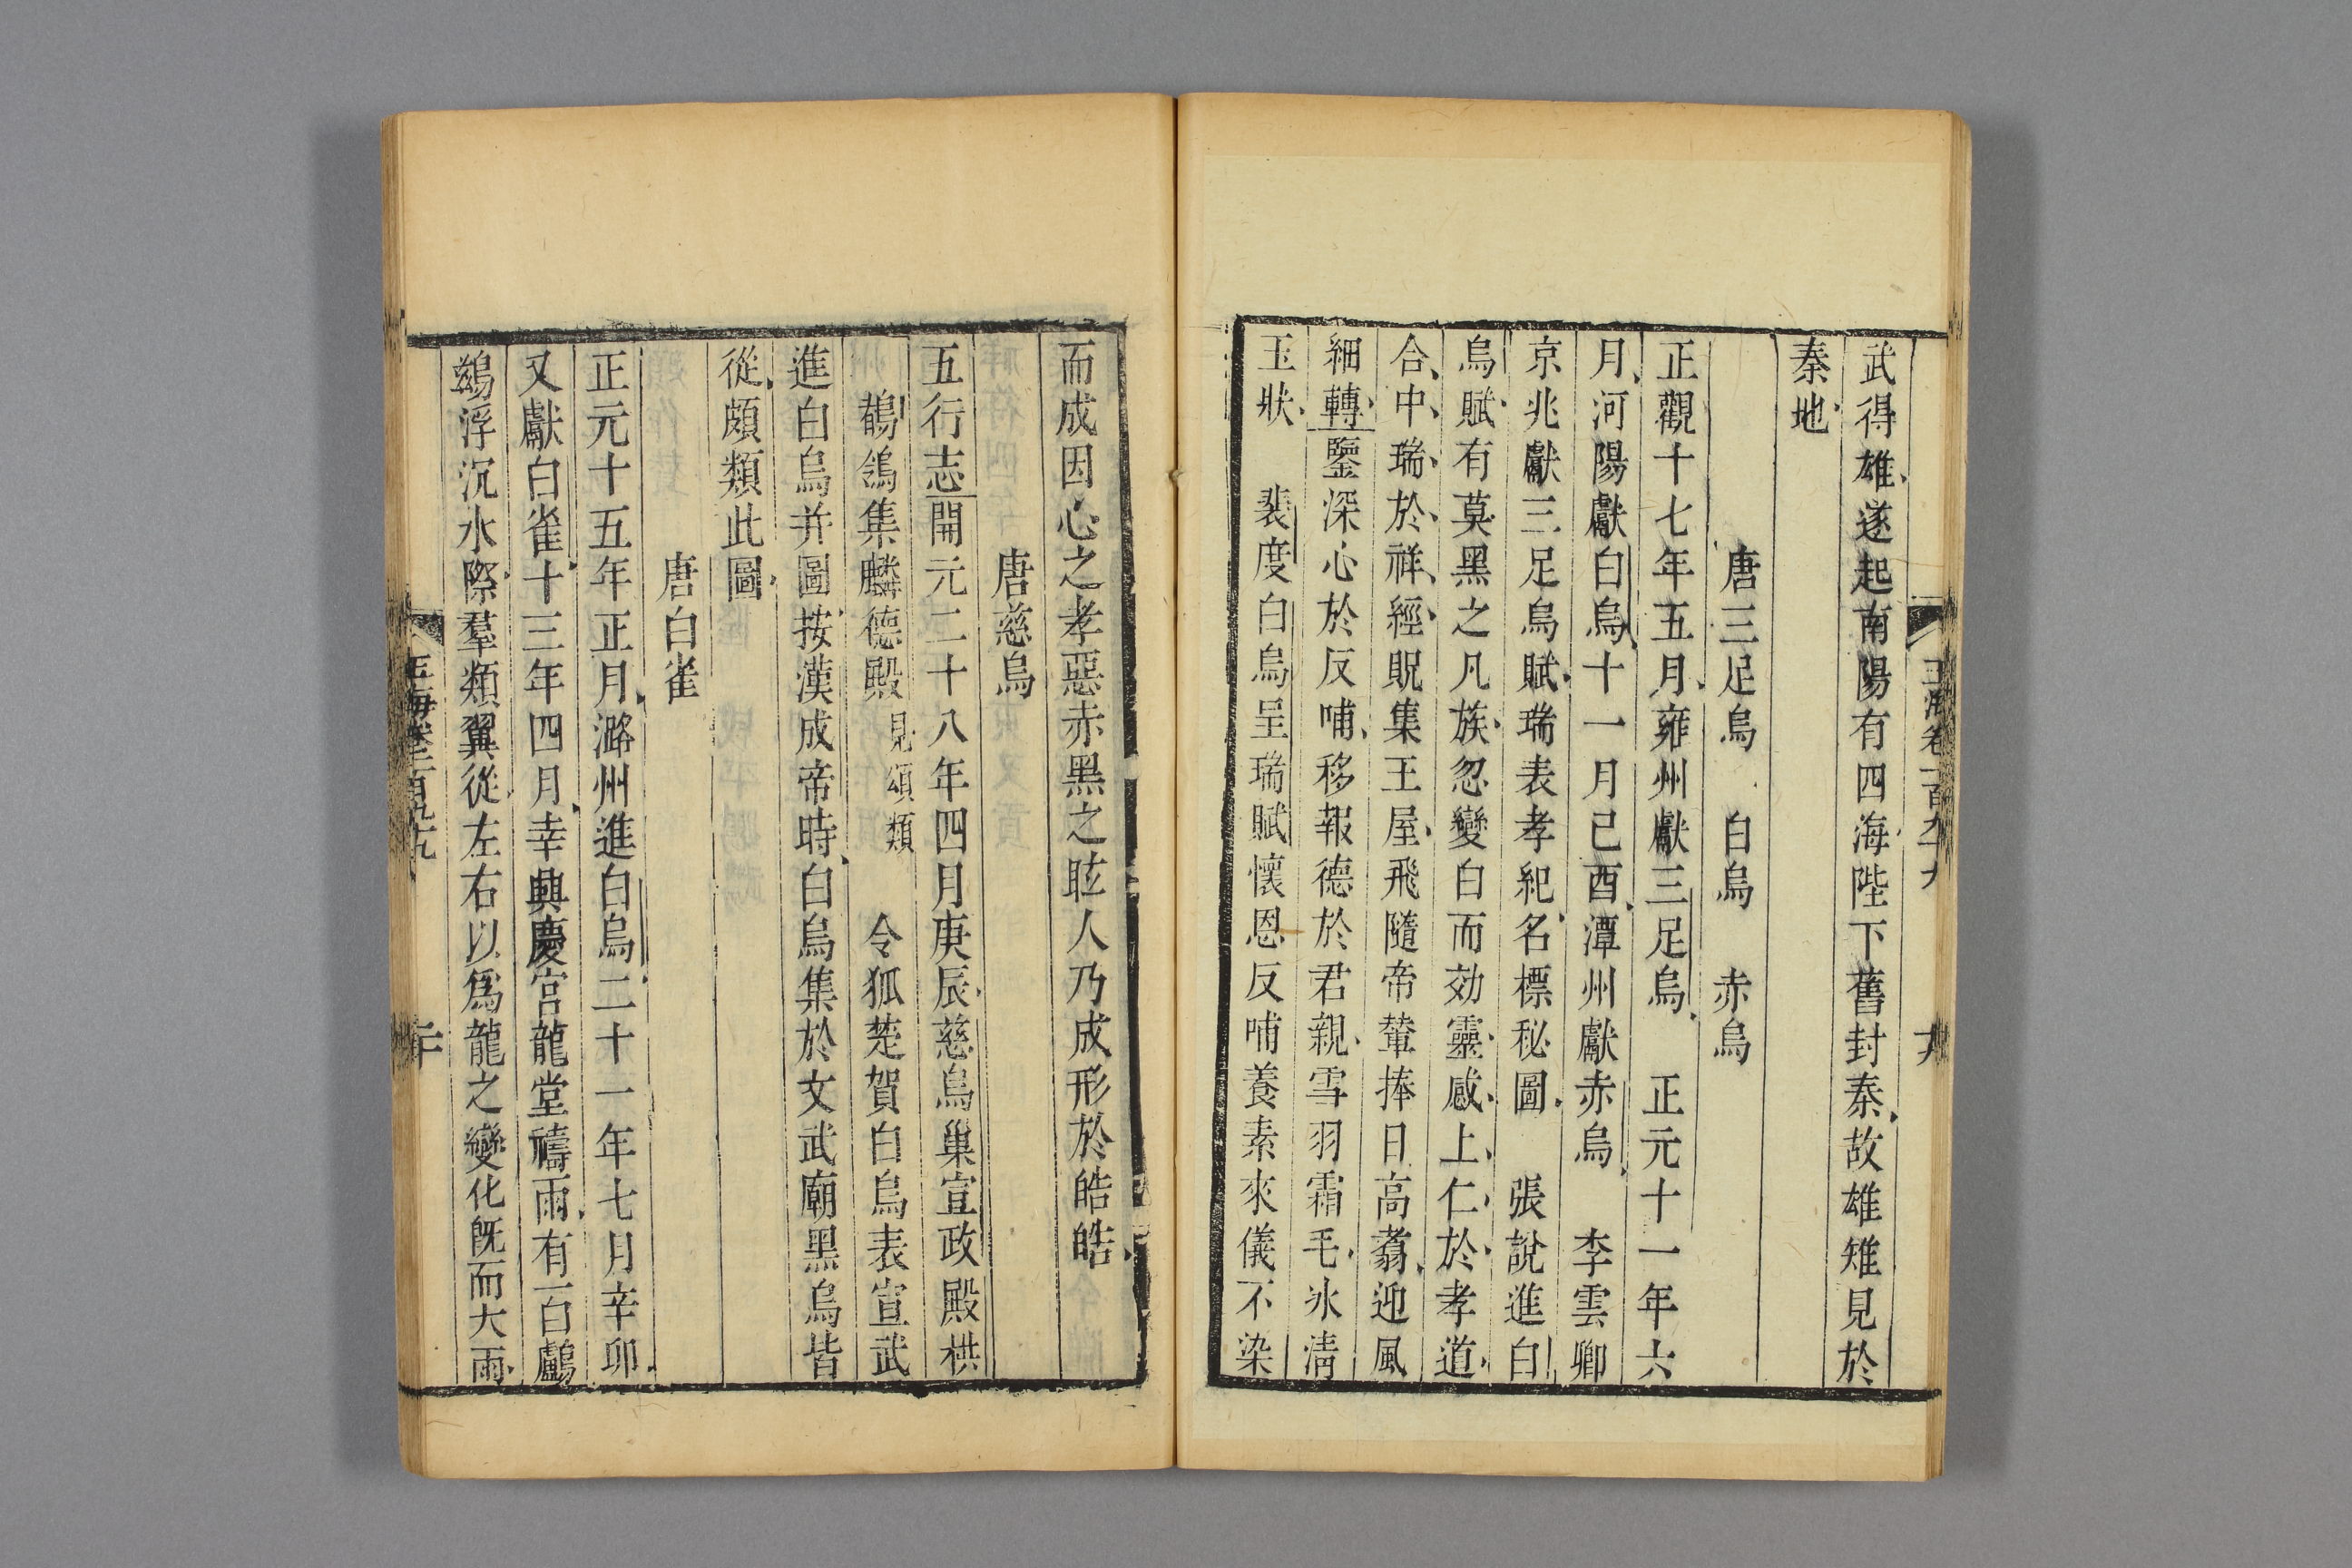 玉海卷一百九十九
武得雄遂起南陽有四海陛下舊封秦故雄雉見於
秦地
唐三足烏 白烏 赤烏
正觀十七年五月雍州獻三足烏 正元十一年六
月河陽獻白烏十一月己酉潭州獻赤烏 李雲卿
京兆獻三足烏賦瑞表孝紀名標秘圖 張說進白
烏賦有莫黑之凡族忽變白而効靈感上仁於孝道
合中瑞於祥經貺集王屋飛隨帝輦捧日高翥迎風
細轉鑒深心於反哺移報德於君親雪羽霜毛氷清
玉狀 裴度白烏呈瑞賦懷恩反哺養素來儀不染
而成因心之孝惡赤黑之眩人乃成形於皓皓
唐慈烏
五行志開元二十八年四月庚辰慈烏巢宣政殿栱
鶺鴒集麟德殿見頌類 令狐楚賀白烏表宣武
進白烏并圖按漢成帝時白烏集於文武廟黑烏皆
從頗類此圖
唐白雀
正元十五年正月潞州進白烏二十一年七月辛卯
又獻白雀十三年四月幸興慶宮龍堂禱雨有一白鸕
鷀浮沉水際羣類翼從左右以爲龍之變化旣而大雨